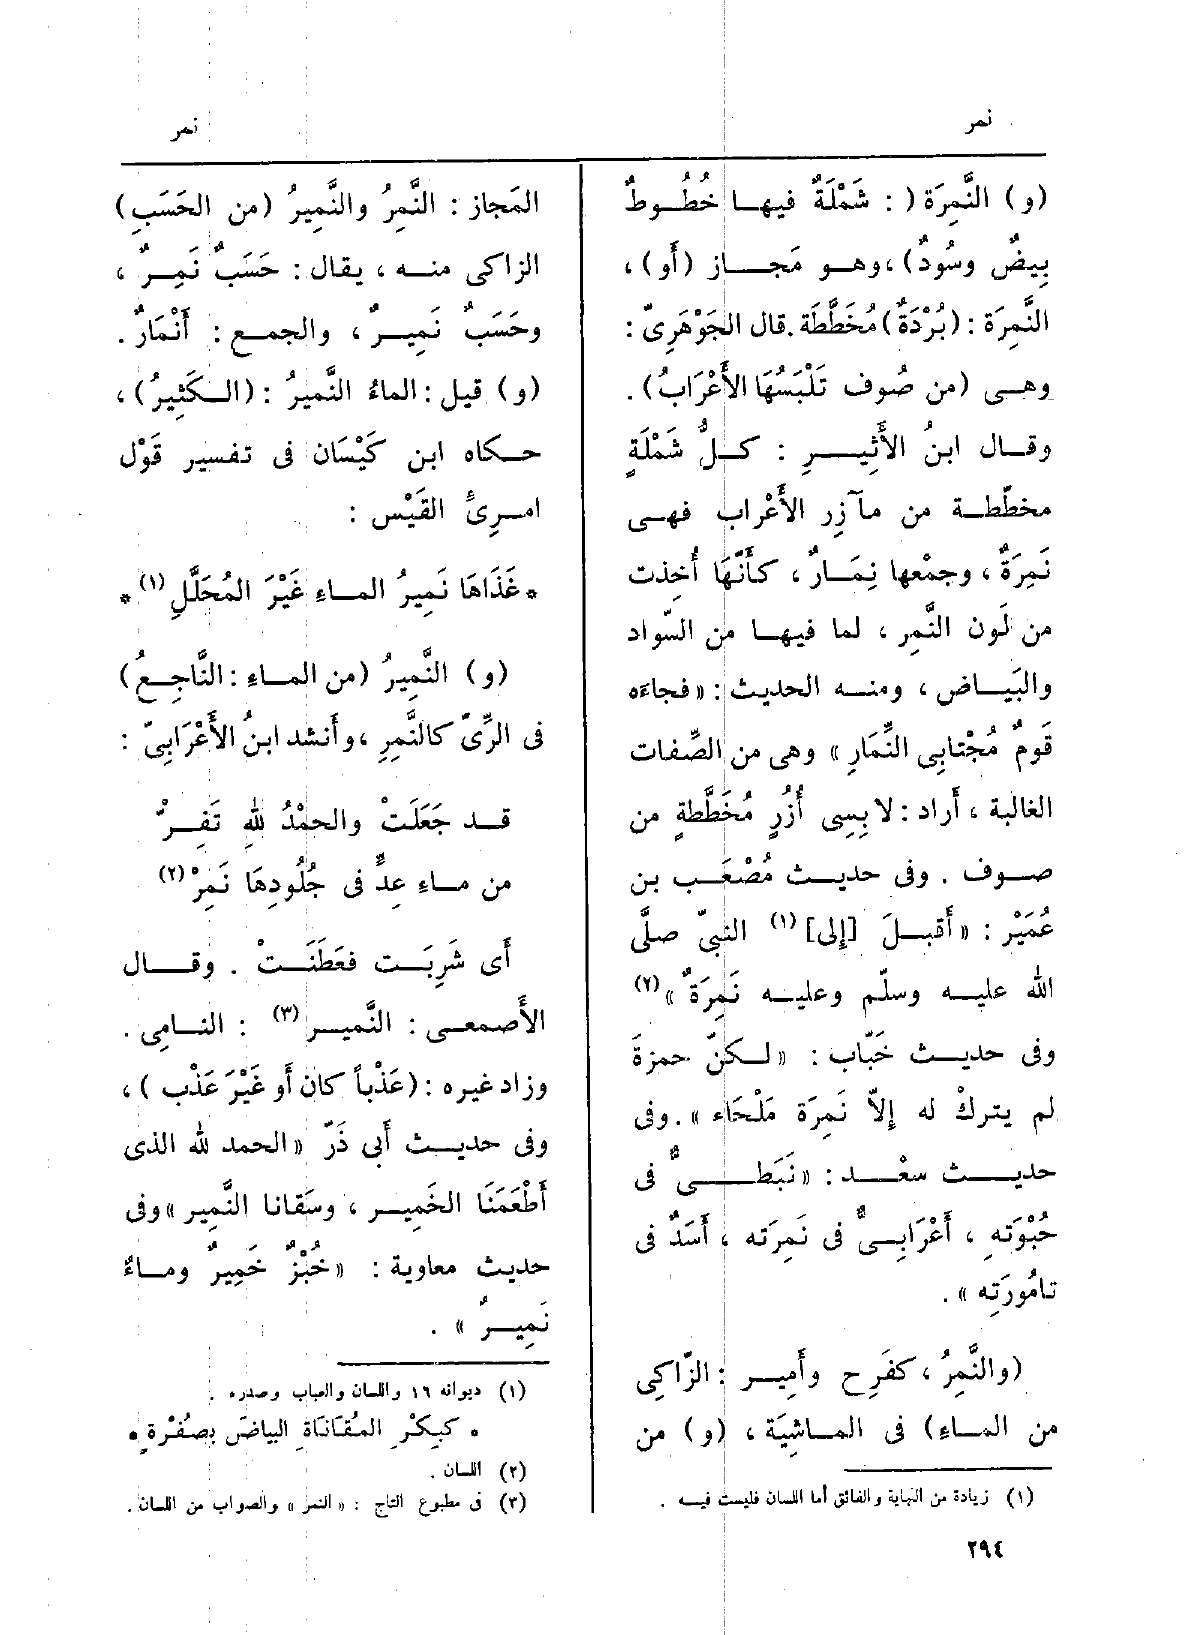 نمر
نمر
(و) النَّمِرَة ( : شَمْلَةٌ فيهـا خُطُـوطٌ
بِيضٌ وسُودٌ) ، وهــو مَجــاز (أَو) ،
النَّمِرَة : (بُرْدَةٌ) مُخَطَّطَة . قال الجَوْهَرِىّ :
وهـى (من صُوف تَلْبَسُهَا الأَعْرَابُ) .
وقـال ابنُ الأَثِيـرِ : كـلُّ شَمْلَةٍ
مخطّطـة من مآزِر الأَعْراب فهـى
نَمِرَةٌ ، وجمْعها نِمَـارٌ ، كأَنَّهَا أُخذت
من لَون النَّمِر ، لما فيهـا من السّواد
والبَيَـاض ، ومنـه الحديث : « فجاءَه
قَومٌ مُجْتابِى النِّمَارِ » وهى من الصِّفات
الغالبة ، أراد : لابِسِى أُزُرٍ مُخَطَّطةٍ من
صـوف . وفى حديـث مُصْعَـب بن
عُمَيْر : « أَقبـلَ [إلى] (١) النبيّ صلَّى
الله عليـه وسلّم وعليـه نَمِرَةٌ » (٢)
وفى حديـث خَبّاب : « لـكنّ حمزةَ
لم يتركْ له إلاّ نَمِرَة مَلْحَاء » . وفى
حديــث سعْــد : « نَبَطـىٌّ فى
حُبْوَتِهِ ، أَعْرَابِـىٌّ فى نَمِرَته ، أَسَدٌ فى
تامُورَتِه » .
(والنَّمِرُ ، كفَرِح وأَمِيـر : الزّاكِى
من المـاءِ) فى المـاشِيَة ، (و) من
(١) زيادة من النهاية والفائق أما اللسان فليست فيـه .
المَجاز : النَّمِرُ والنَّمِيرُ (من الحَسَبِ)
الزاكى منـه ، يقال : حَسَبٌ نَمِـرٌ ،
وحَسَبٌ نَمِيـرٌ ، والجمـع : أَنْمَارٌ .
(و) قيل : الماءُ النَّمِيرُ : (الـكَثِيرُ) ،
حـكاه ابن كَيْسَان فى تفسير قَوْل
امـرِئ القَيْس :
* غَذَاهَا نَمِيرُ المـاءِ غَيْرَ المُحَلَّلِ (١) *
(و) النَّمِيرُ (من المـاءِ : النَّاجِـعُ)
فى الرِّىّ كالنَّمِرِ ، وأَنشد ابنُ الأَعْرَابِىّ :
قـد جَعَلَتْ والحمْدُ للهِ تَفِـرّْ
من مـاءِ عِدٍّ فى جُلُودِهَا نَمِرْ (٢)
أَى شَرِبَـت فعَطَنَـتْ . وقـال
الأَصمعـى : النَّمِيـر (٣) : النـامِى .
وزاد غيره : (عَذْباً كان أَو غَيْرَ عَذْب) ،
وفى حديـث أَبى ذَرّ « الحمد لله الذى
أَطْعَمَنَا الخَمِيـر ، وسَقانا النَّمِير » وفى
حديث معاوية : « خُبْزٌ خَمِيرٌ ومـاءٌ
نَمِيـرٌ » .
(١) ديوانه ١٦ واللسان والعباب وصدره .
* كبِكْرِ المُقَانَاةِ البياضَ بِصُفْرَةٍ *
(٢) اللسان .
(٣) فى مطبوع التاج : « النمر » والصواب من اللسان .
٢٩٤